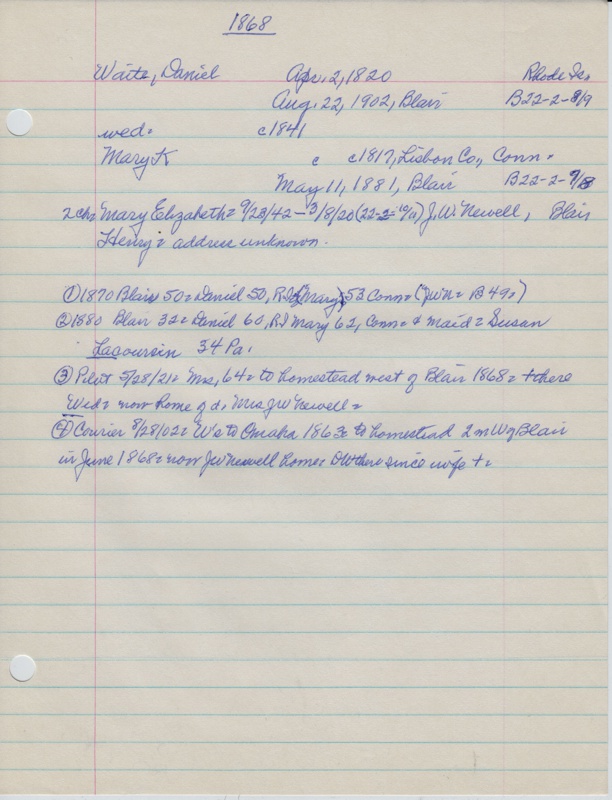 1868
Waite, Daniel Apr. 2, 1820 Rhode Is.
Aug. 22, 1902, Blair B22-2-8/9
wed= c1841
Mary K c c1817, Lisbon Co., Conn=
May 11, 1881, Blair B22-2-7/8
2ch= Mary Elizabeth= 9/23/42-3/8/20 (22-2-10/11) J.W. Newell, Blair
Henry= address unknown.
① 1870 Blair 50= Daniel 50, RI Mary 53 Conn= (JWN= B 49=)
② 1880 Blair 32= Daniel 60, RI Mary 62, Conn= & maid= Susan
Lacoursin 34 Pa.
③ Pilot 5/28/21= Mrs, 64= to homestead west of Blair 1868= + there
Wed= now home of d. Mrs JW Newell=
④ Courier 8/28/02= Ws to Omaha 1863= to homestead 2 m W of Blair
in June 1868= now JW Newell home= DW there since wife +=